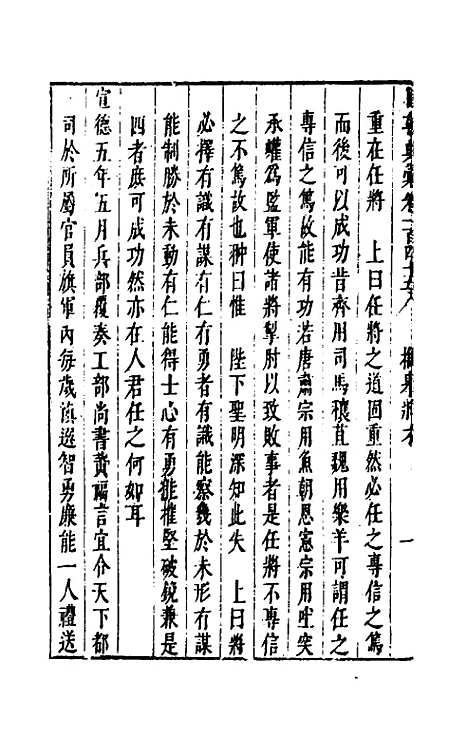 國朝典彙卷一百四十五 推舉將才 一
重在任將　上曰任將之道固重然必任之專信之篤
而後可以成功昔齊用司馬穰苴魏用樂羊可謂任之
專信之篤故能有功若唐肅宗用魚朝恩憲宗用吐突
承璀為監軍使諸將掣肘以致敗事者是任將不專信
之不篤故也翀曰惟　陛下聖明深知此失　上曰將
必擇有識有謀有仁有勇者有識能察幾於未形有謀
能制勝於未動有仁能得士心有勇能摧堅破銳兼是
四者庶可成功然亦在人君任之何如耳
宣德五年五月兵部覆奏工部尚書黃福言宜令天下都
司於所屬官員旗軍內每歲慎選智勇廉能一人禮送